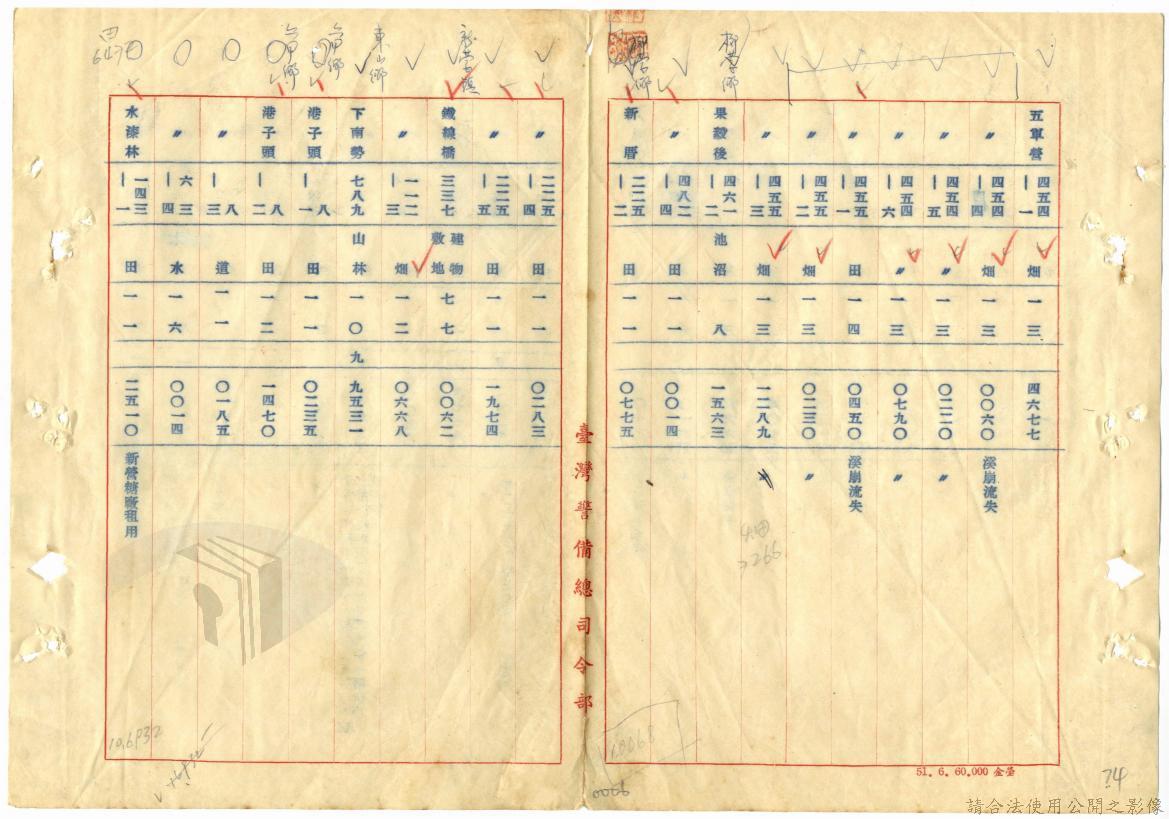 五軍營 四五四 | 一 畑 一 三 四六七七
〃 四五四 | 四 畑 一 三 〇〇六〇 溪崩流失
〃 四五四 | 五 〃 一 三 〇二二〇 〃
〃 四五四 | 六 〃 一 三 〇七九〇 〃
〃 四五五 | 一 田 一 四 〇四五〇 溪崩流失
〃 四五五 | 二 畑 一 三 〇二三〇 〃
〃 四五五 | 三 畑 一 三 一二八九 〃
果毅後 四六一 | 二 池沼 八 一五六三
〃 四八二 | 四 田 一 一 〇〇一四
新厝 二二五 | 二 田 一 一 〇七七五
〃 二二五 | 四 田 一 一 〇二八三
〃 二二五 | 五 田 一 一 一九七四
鐵線橋 三三七 建物敷地 七 七 〇〇六二
〃 一一二 | 三 畑 一 二 〇六六八
下南勢 七八九 山林 一 〇 九 九五三一
港子頭 八 | 一 田 一 一 〇二三五
港子頭 八 | 二 田 一 二 一四七〇
〃 八 | 三 道 一 一 〇一八五
〃 六三 | 四 水 一 六 〇〇一四
水漆林 一四三 | 一 田 一 一 二五一〇 新營糖廠租用
柳營鄉
東山鄉
六甲鄉
六甲鄉
臺灣警備總司令部
51. 6. 60.000 金箊
74
請合法使用公開之影像